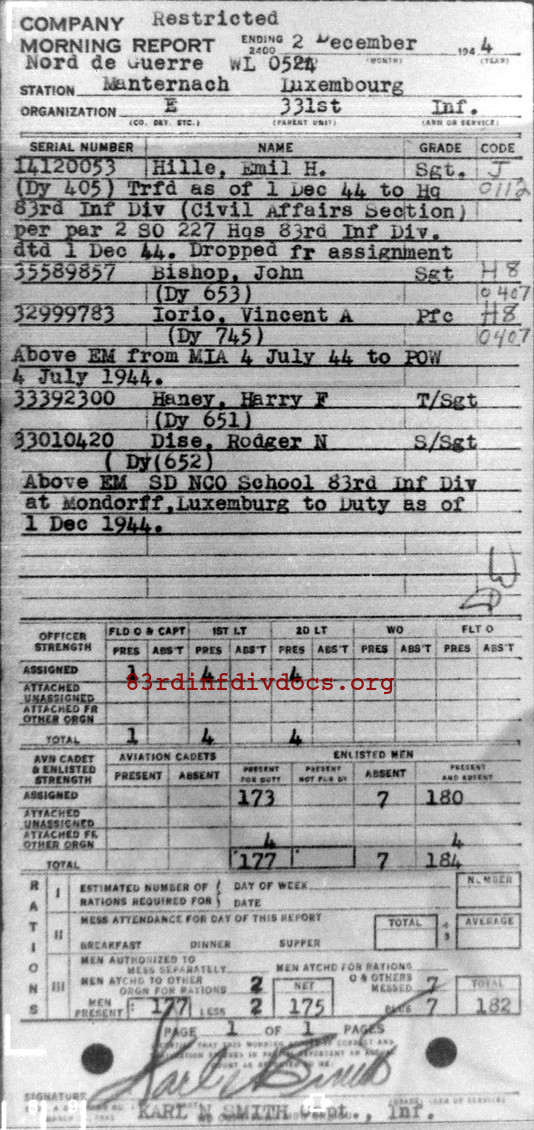 COMPANY Restricted
MORNING REPORT ENDING 2400 2 December 1944
(MONTH) (YEAR)
Nord de Guerre WL 0524
STATION Manternach Luxembourg
ORGANIZATION E 331st Inf.
(CO. DET. ETC.) (PARENT UNIT) (ARM OR SERVICE)
SERIAL NUMBER NAME GRADE CODE
14120053 Hille, Emil H. Sgt. J
(Dy 405) Trfd as of 1 Dec 44 to Hq 0112
83rd Inf Div (Civil Affairs Section)
per par 2 SO 227 Hqs 83rd Inf Div.
dtd 1 Dec 44. Dropped fr assignment
35589857 Bishop, John Sgt H8
(Dy 653) 0407
32999783 Iorio, Vincent A Pfc H8
(Dy 745) 0407
Above EM from MIA 4 July 44 to POW
4 July 1944.
33392300 Haney, Harry F T/Sgt
(Dy 651)
33010420 Dise, Rodger N S/Sgt
( Dy(652)
Above EM SD NCO School 83rd Inf Div
at Mondorff,Luxemburg to Duty as of
1 Dec 1944.
OFFICER STRENGTH FLD O & CAPT 1ST LT 2D LT WO FLT O
PRES ABS'T PRES ABS'T PRES ABS'T PRES ABS'T PRES ABS'T
ASSIGNED 1 4 4
83rdinfdivdocs.org
ATTACHED UNASSIGNED
ATTACHED FR OTHER ORGN
TOTAL 1 4 4
AVN CADET & ENLISTED STRENGTH AVIATION CADETS ENLISTED MEN
PRESENT ABSENT PRESENT FOR DUTY PRESENT NOT FOR DY ABSENT PRESENT AND ABSENT
ASSIGNED 173 7 180
ATTACHED UNASSIGNED
ATTACHED FR OTHER ORGN 4 4
TOTAL 177 7 184
RATIONS
I ESTIMATED NUMBER OF RATIONS REQUIRED FOR { DAY OF WEEK DATE NUMBER
II MESS ATTENDANCE FOR DAY OF THIS REPORT TOTAL ÷ 3 AVERAGE
BREAKFAST DINNER SUPPER
III MEN AUTHORIZED TO MESS SEPARATELY MEN ATCHD FOR RATIONS
MEN ATCHD TO OTHER ORGN FOR RATIONS 2 NET O & OTHERS MESSED 7 TOTAL
MEN PRESENT 177 LESS 2 175 PLUS 7 182
PAGE 1 OF 1 PAGES
Karl N Smith
SIGNATURE
KARL N SMITH Capt., Inf.